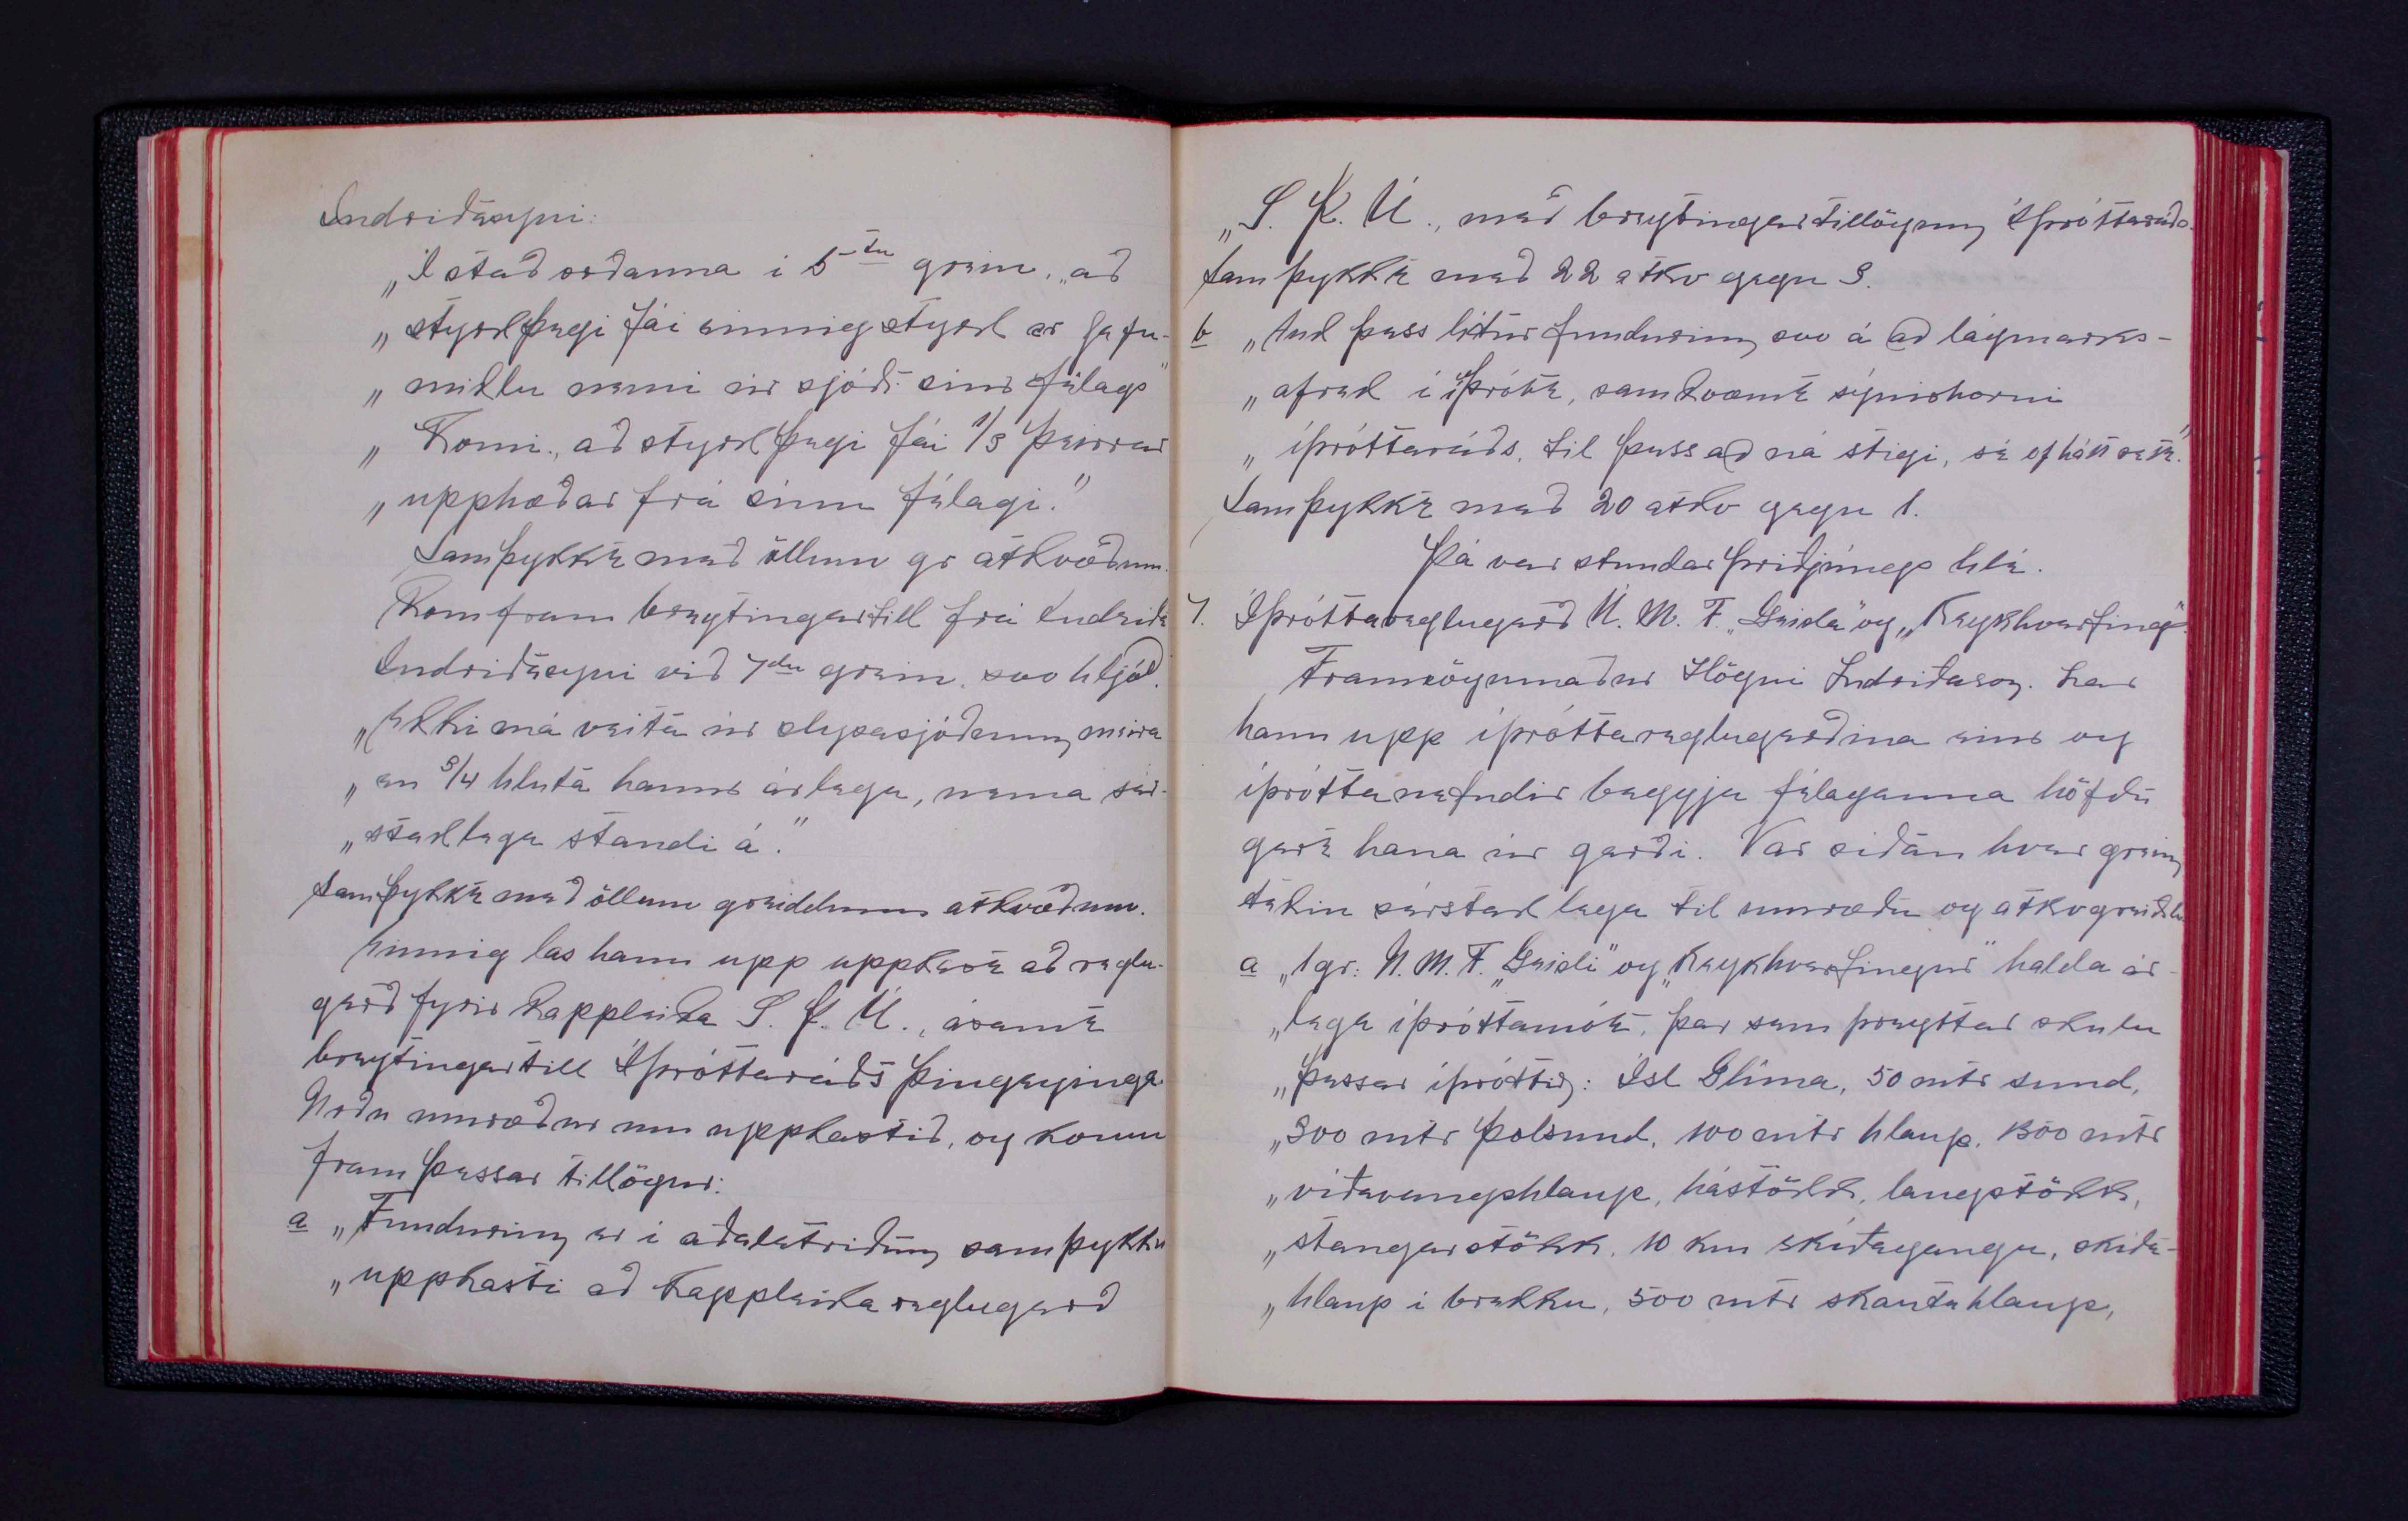 Indriðasyni:
„Í stað orðanna í 5-tu grein, „að
„styrkþegi fái einnig styrk er hefu-
„miklu nemi úr sjóði síns félags"
„Komi, að styrkþegi fái 1/3 þeirrar
„upphæðar frá sínu félagi."
Samþykkt með öllum gr atkvæðum.
Kom fram breytingartill frá Indriða
Indriðasyni við 7du grein, svo hljóð.
„Ekki má veita úr slysasjóðnum meira
„en 3/4 hluta hanns árlega, nema sér-
„staklega standi á."
Samþykkt með öllum greiddum atkvæðum.
Einnig las hann upp uppkast að reglu-
gerð fyrir kappleika S. Þ. U., ásamt
breytingartill Íþróttaráðs Þingeyinga.
Urðu umræður um uppkastið, og komu
fram þessar tillögur:
a „Fundurinn er í aðalatriðum samþykkur
„uppkasti að kappleika reglugerð
„S. Þ. U., með breytingartillögum Íþróttaráðs.
Samþykkt með 22 atkv gegn 3.
b „Auk þess lítur fundurinn svo á að lágmarks-
„afrek í íþrótt, samkvæmt sýnishorni
„íþróttaráðs, til þess að ná stigi, sé of hátt sett."
Samþykkt með 20 atkv gegn 1.
Þá var stundarþriðjungs hlé.
7. Íþróttareglugerð U. M. F. „Geisla" og „Reykhverfings".
Framsögumaður Högni Indriðason. Las
hann upp íþróttareglugerðina eins og
íþróttanefndir beggja félaganna höfðu
gert hana úr garði. Var síðan hver grein
tekin sérstaklega til umræðu og atkvgreiðslu
a „1gr: U. M. F. „Geisli" og „Reykhverfingur" halda ár-
„lega íþróttamót, þar sem þreyttar skulu
„þessar íþróttir: Ísl Glíma, 50 mtr sund,
„300 mtr þolsund, 100 mtr hlaup, 1500 mtr
„víðavangshlaup, hástökk, langstökk,
„stangarstökk, 10 km skíðaganga, skíða-
„hlaup í brekku, 500 mtr skautahlaup,